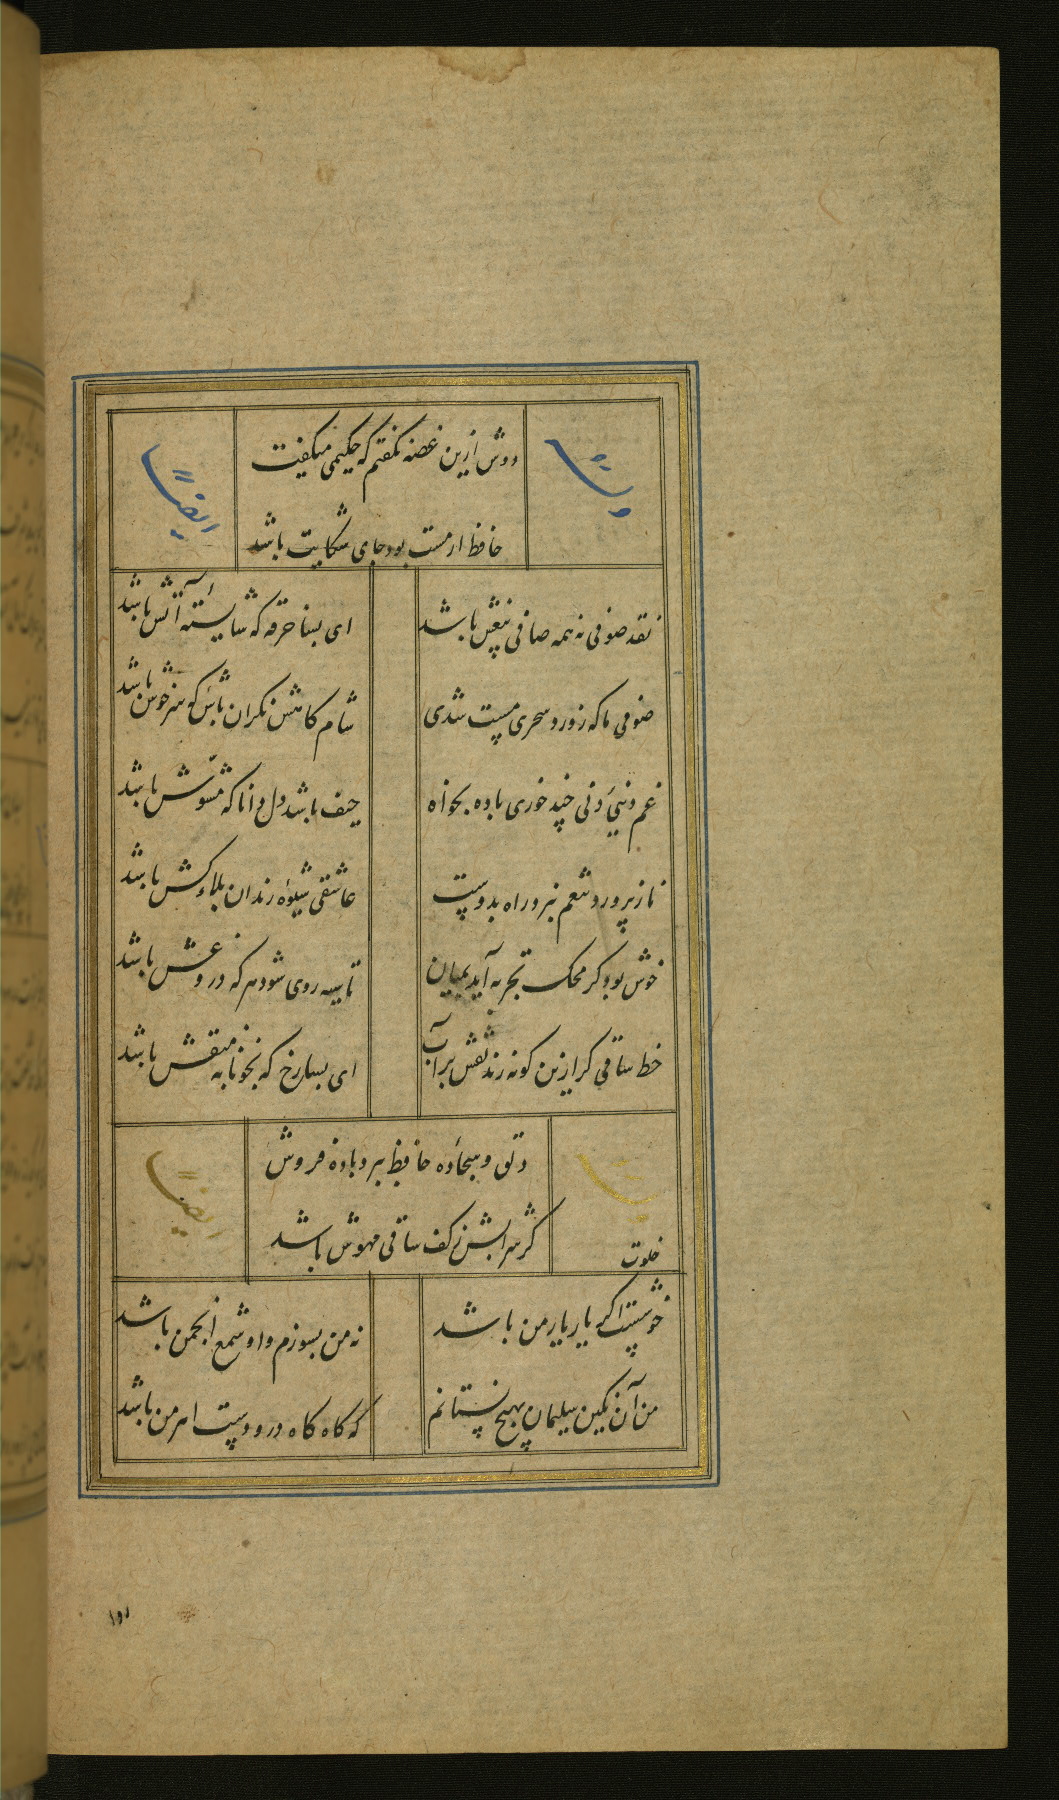 وله
دوش ازین غصه نخفتم که حکیمی میگفت
ایضاً
حافظ ار مست بود جای شکایت باشد
نقد صوفی نه همه صافی بیغش باشد
ای بسا خرقه که شایستهٔ آتش باشد
صوفی ما که ز ورد سحری مست شدی
شام کاهش نگران باش که سرخوش باشد
غم دنییٔ دنی چند خوری باده بخواه
حیف باشد دل دانا که مشوّش باشد
ناز پرورد تنعم نبرد راه بدوست
عاشقی شیوهٔ رندان بلاکش باشد
خوش بود کر محک تجربه آید بمیان
تا سیه روی شود هر که درو غش باشد
خط ساقی کر ازین کونه زند نقش بر آب
ای بسا رخ که بخونابه منقش باشد
دلق و سجّاده حافظ ببرد باده فروش
ایضاً
گر شرابش ز کف ساقی مهوش باشد
خوشست خلوت اکر یار یار من باشد
نه من بسوزم و او شمع انجمن باشد
من آن نکین سلیمان بهیچ نستانم
که کاه کاه درو دست اهرمن باشد